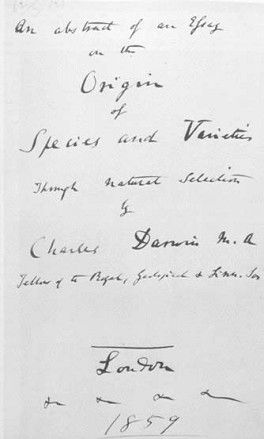 An abstract of an Essay
on the
Origin
of
Species and Varieties
Through natural selection
by
Charles Darwin M.A
Fellow of the Royal, Geological & Linn. Soc
London
&c &c &c &c
1859